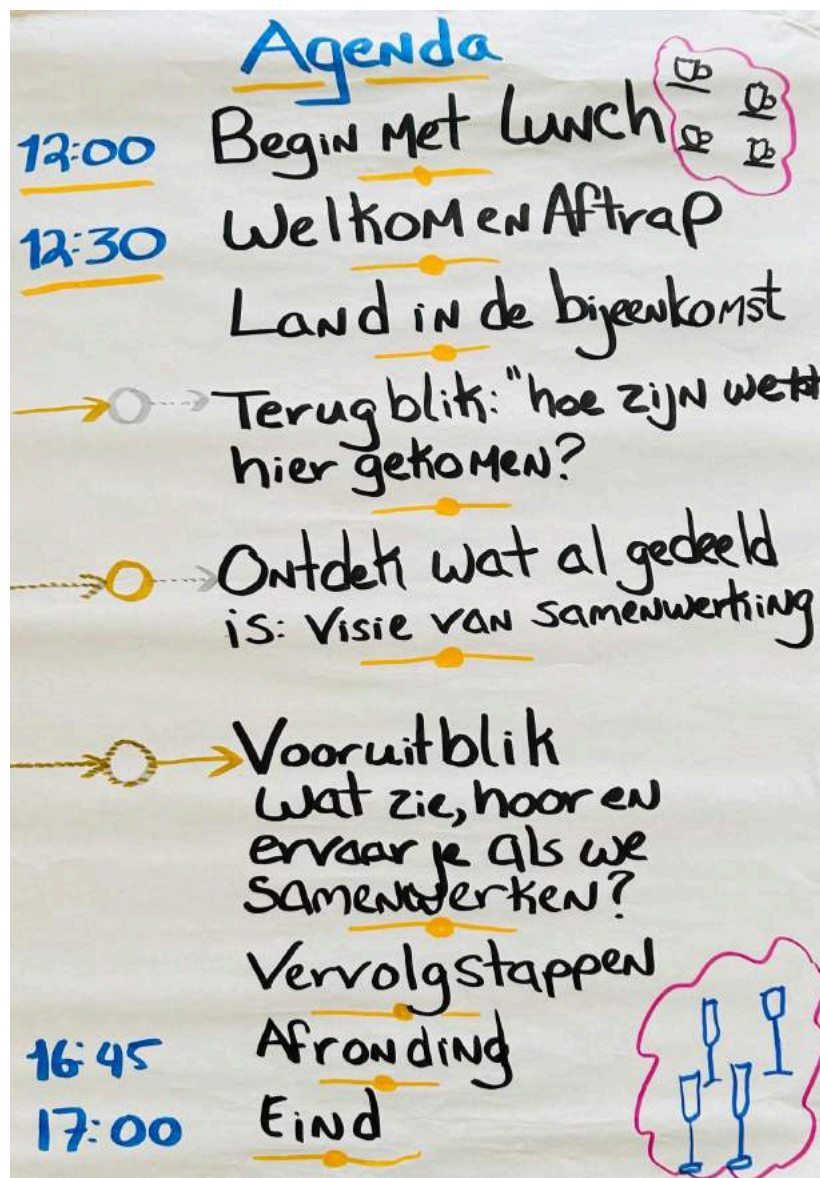 Agenda
12:00 Begin met Lunch
12:30 Welkom en Aftrap
Land in de bijeenkomst
Terugblik: "hoe zijn we
hier gekomen?
Ontdek wat al gedeeld
is: Visie van samenwerking
Vooruitblik
Wat zie, hoor en
ervaar je als we
samenwerken?
Vervolgstappen
16:45 Afronding
17:00 Eind